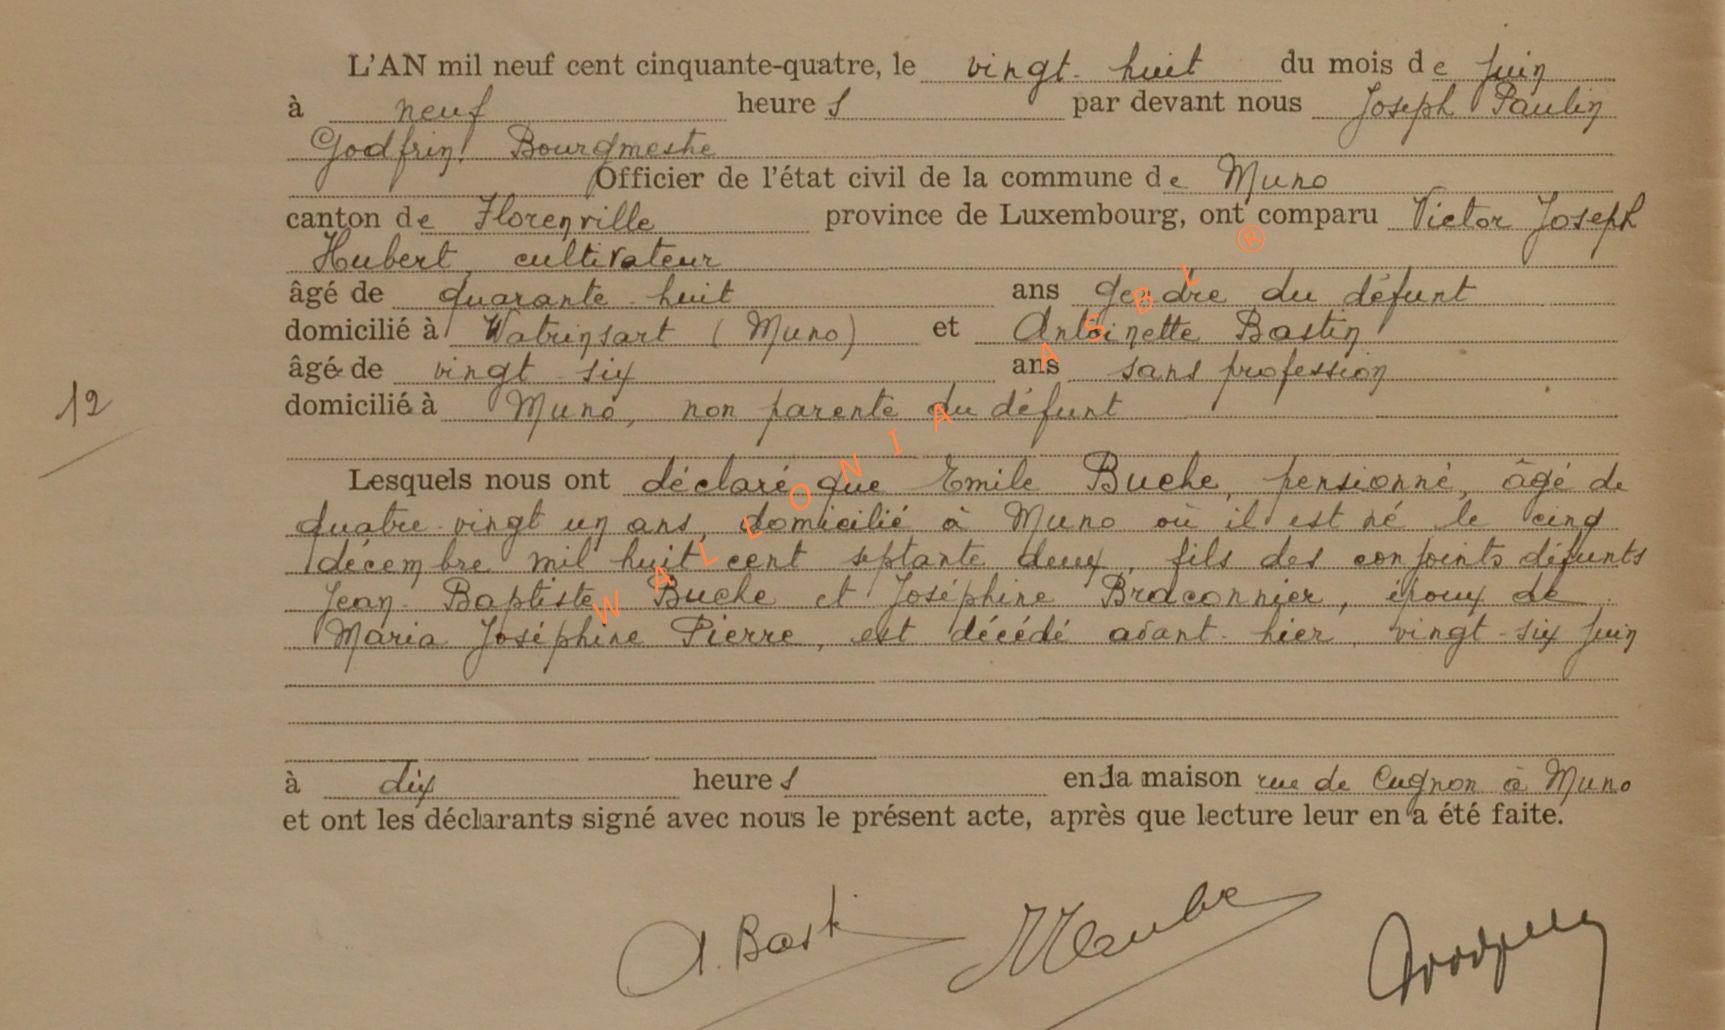 L'AN mil neuf cent cinquante-quatre, le vingt-huit du mois de juin
à neuf heures par devant nous Joseph Paulin
Godfrin, Bourgmestre
Officier de l'état civil de la commune de Muno
canton de Florenville province de Luxembourg, ont comparu Victor Joseph
Hubert, cultivateur
âgé de quarante-huit ans gendre du défunt
domicilié à Watrinsart (Muno) et Antoinette Bastin
âgé de vingt-six ans sans profession
12
domicilié à Muno, non parente du défunt
Lesquels nous ont déclaré que Emile Buche, pensionné, âgé de
quatre-vingt un ans, domicilié à Muno où il est né le cinq
décembre mil huit cent septante deux, fils des conjoints défunts
Jean-Baptiste Buche et Joséphine Braconnier, époux de
Maria Joséphine Pierre, est décédé avant-hier, vingt-six juin
à dix heures en la maison rue de Cugnon à Muno
et ont les déclarants signé avec nous le présent acte, après que lecture leur en a été faite.
WALLONIA ASBL ®
A. Bastin